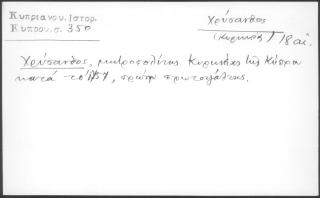 Κυπριανου. Ιστορ.
Κυπρου. σ. 350
Χρύσανθος
(Κυρηνείας) 18 αἰ.
Χρύσανθος, μητροπολίτης Κυρηνείας τῆς Κύπρου
κατὰ τὸ 1757, πρώην πρωτοψάλτης.